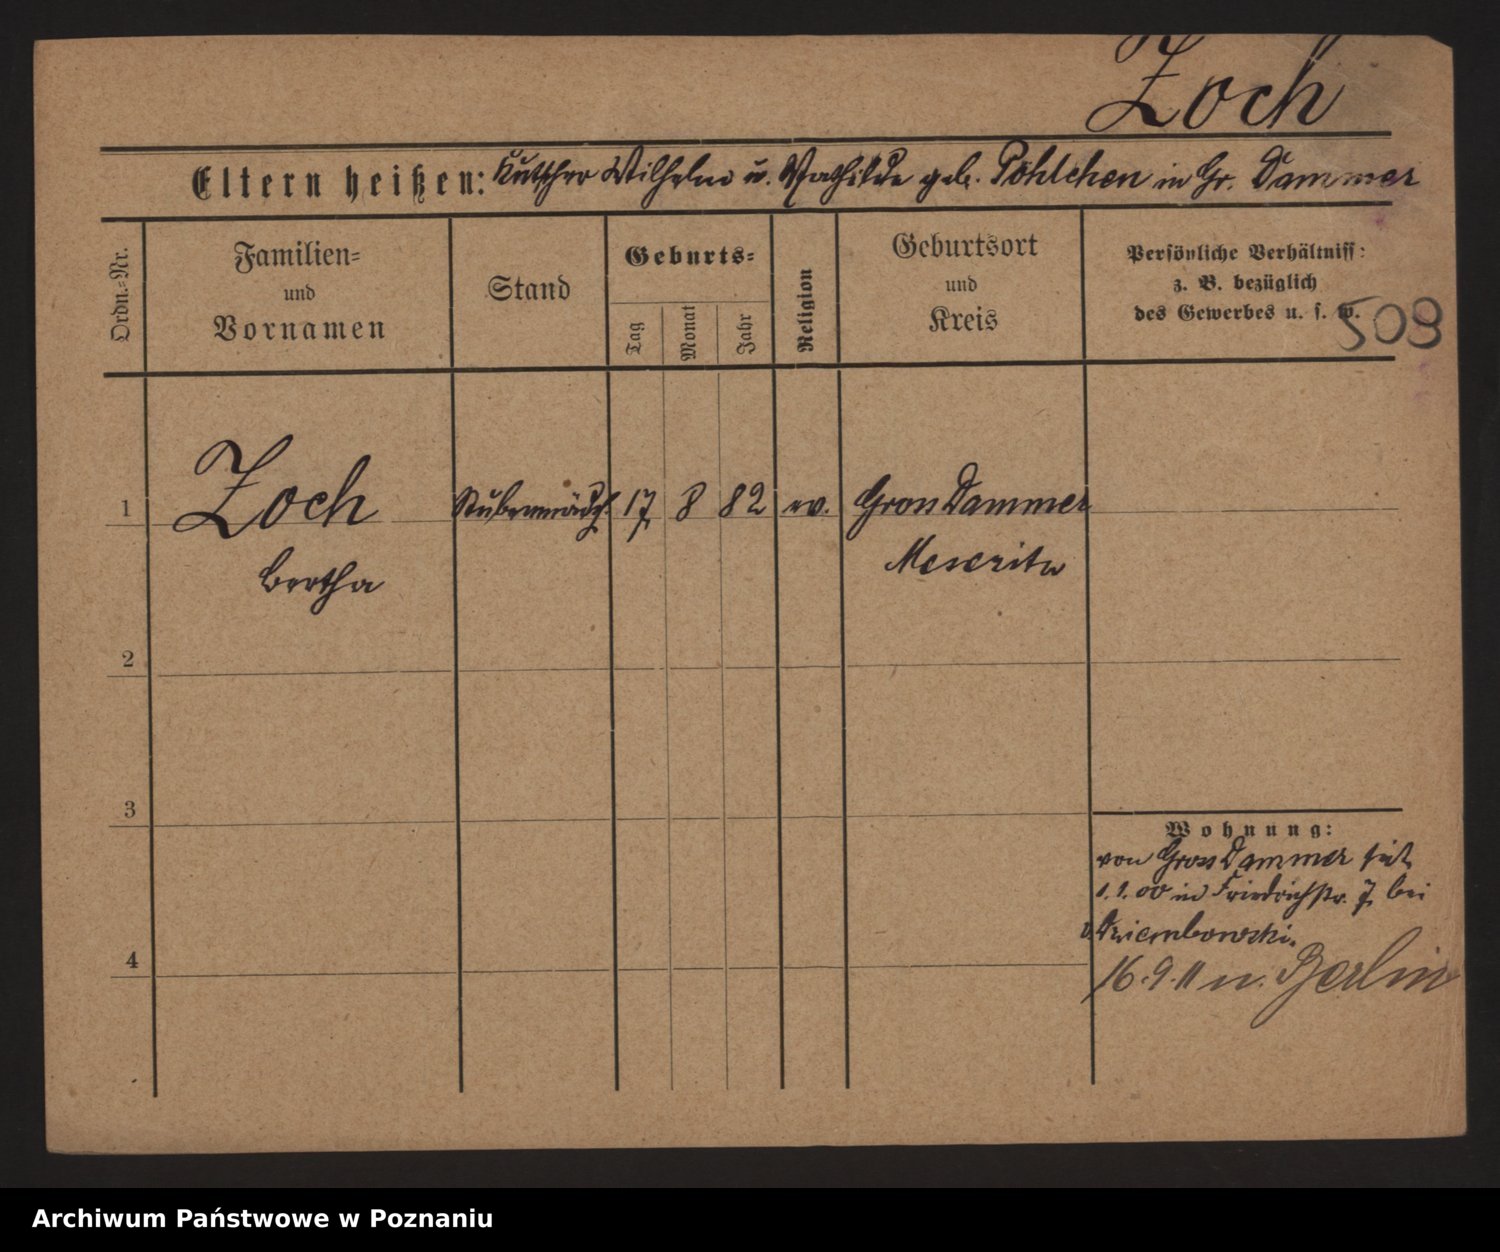 Zoch
Eltern heißen: Kutscher Wilhelm u. Mathilde geb. Pöhlchen in Gr. Dammer
Ordn.-Nr.
Familien-
und
Vornamen
Stand
Geburts-
Tag
Monat
Jahr
Religion
Geburtsort
und
Kreis
Persönliche Verhältniss:
z. B. bezüglich
des Gewerbes u. s. w.
509
1
Zoch
Stubenmädch.
17
8
82
ev.
Gross Dammer
Bertha
Meseritz
2
3
4
Wohnung:
von Gross Dammer seit
1.1.00 in Friedrichstr. 7 bei
v. Dziembowski.
16.9.11 n. Berlin
Archiwum Państwowe w Poznaniu